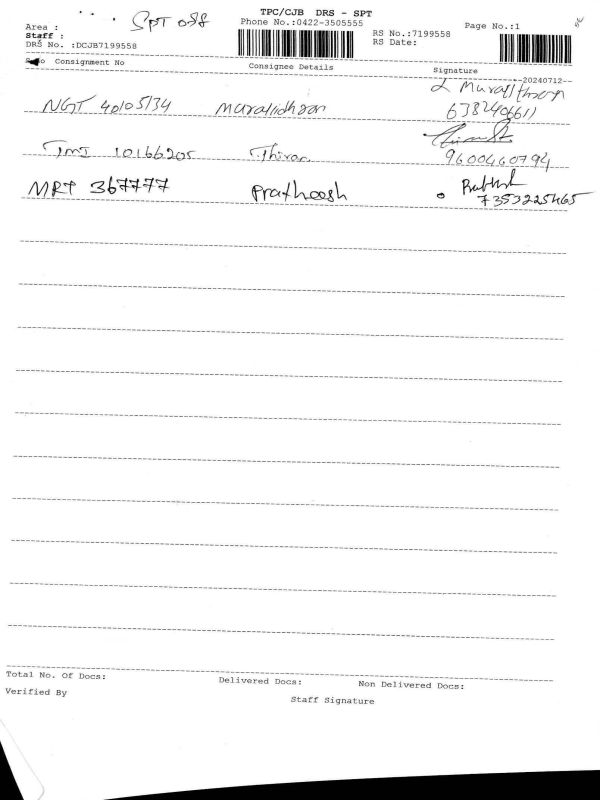 SPT 088
TPC/CJB DRS - SPT
Area : Phone No.:0422-3505555 Page No.:1
Staff : RS No.:7199558
DRS No. :DCJB7199558 RS Date:
Consignment No Consignee Details Signature
--20240712--
NGT 40105134 Muralidharan Muralitharan
6382406611
TMJ 10166205 Thiran
9600460794
MRT 367777 Prathoosh
7353225465
Total No. Of Docs: Delivered Docs: Non Delivered Docs:
Verified By Staff Signature